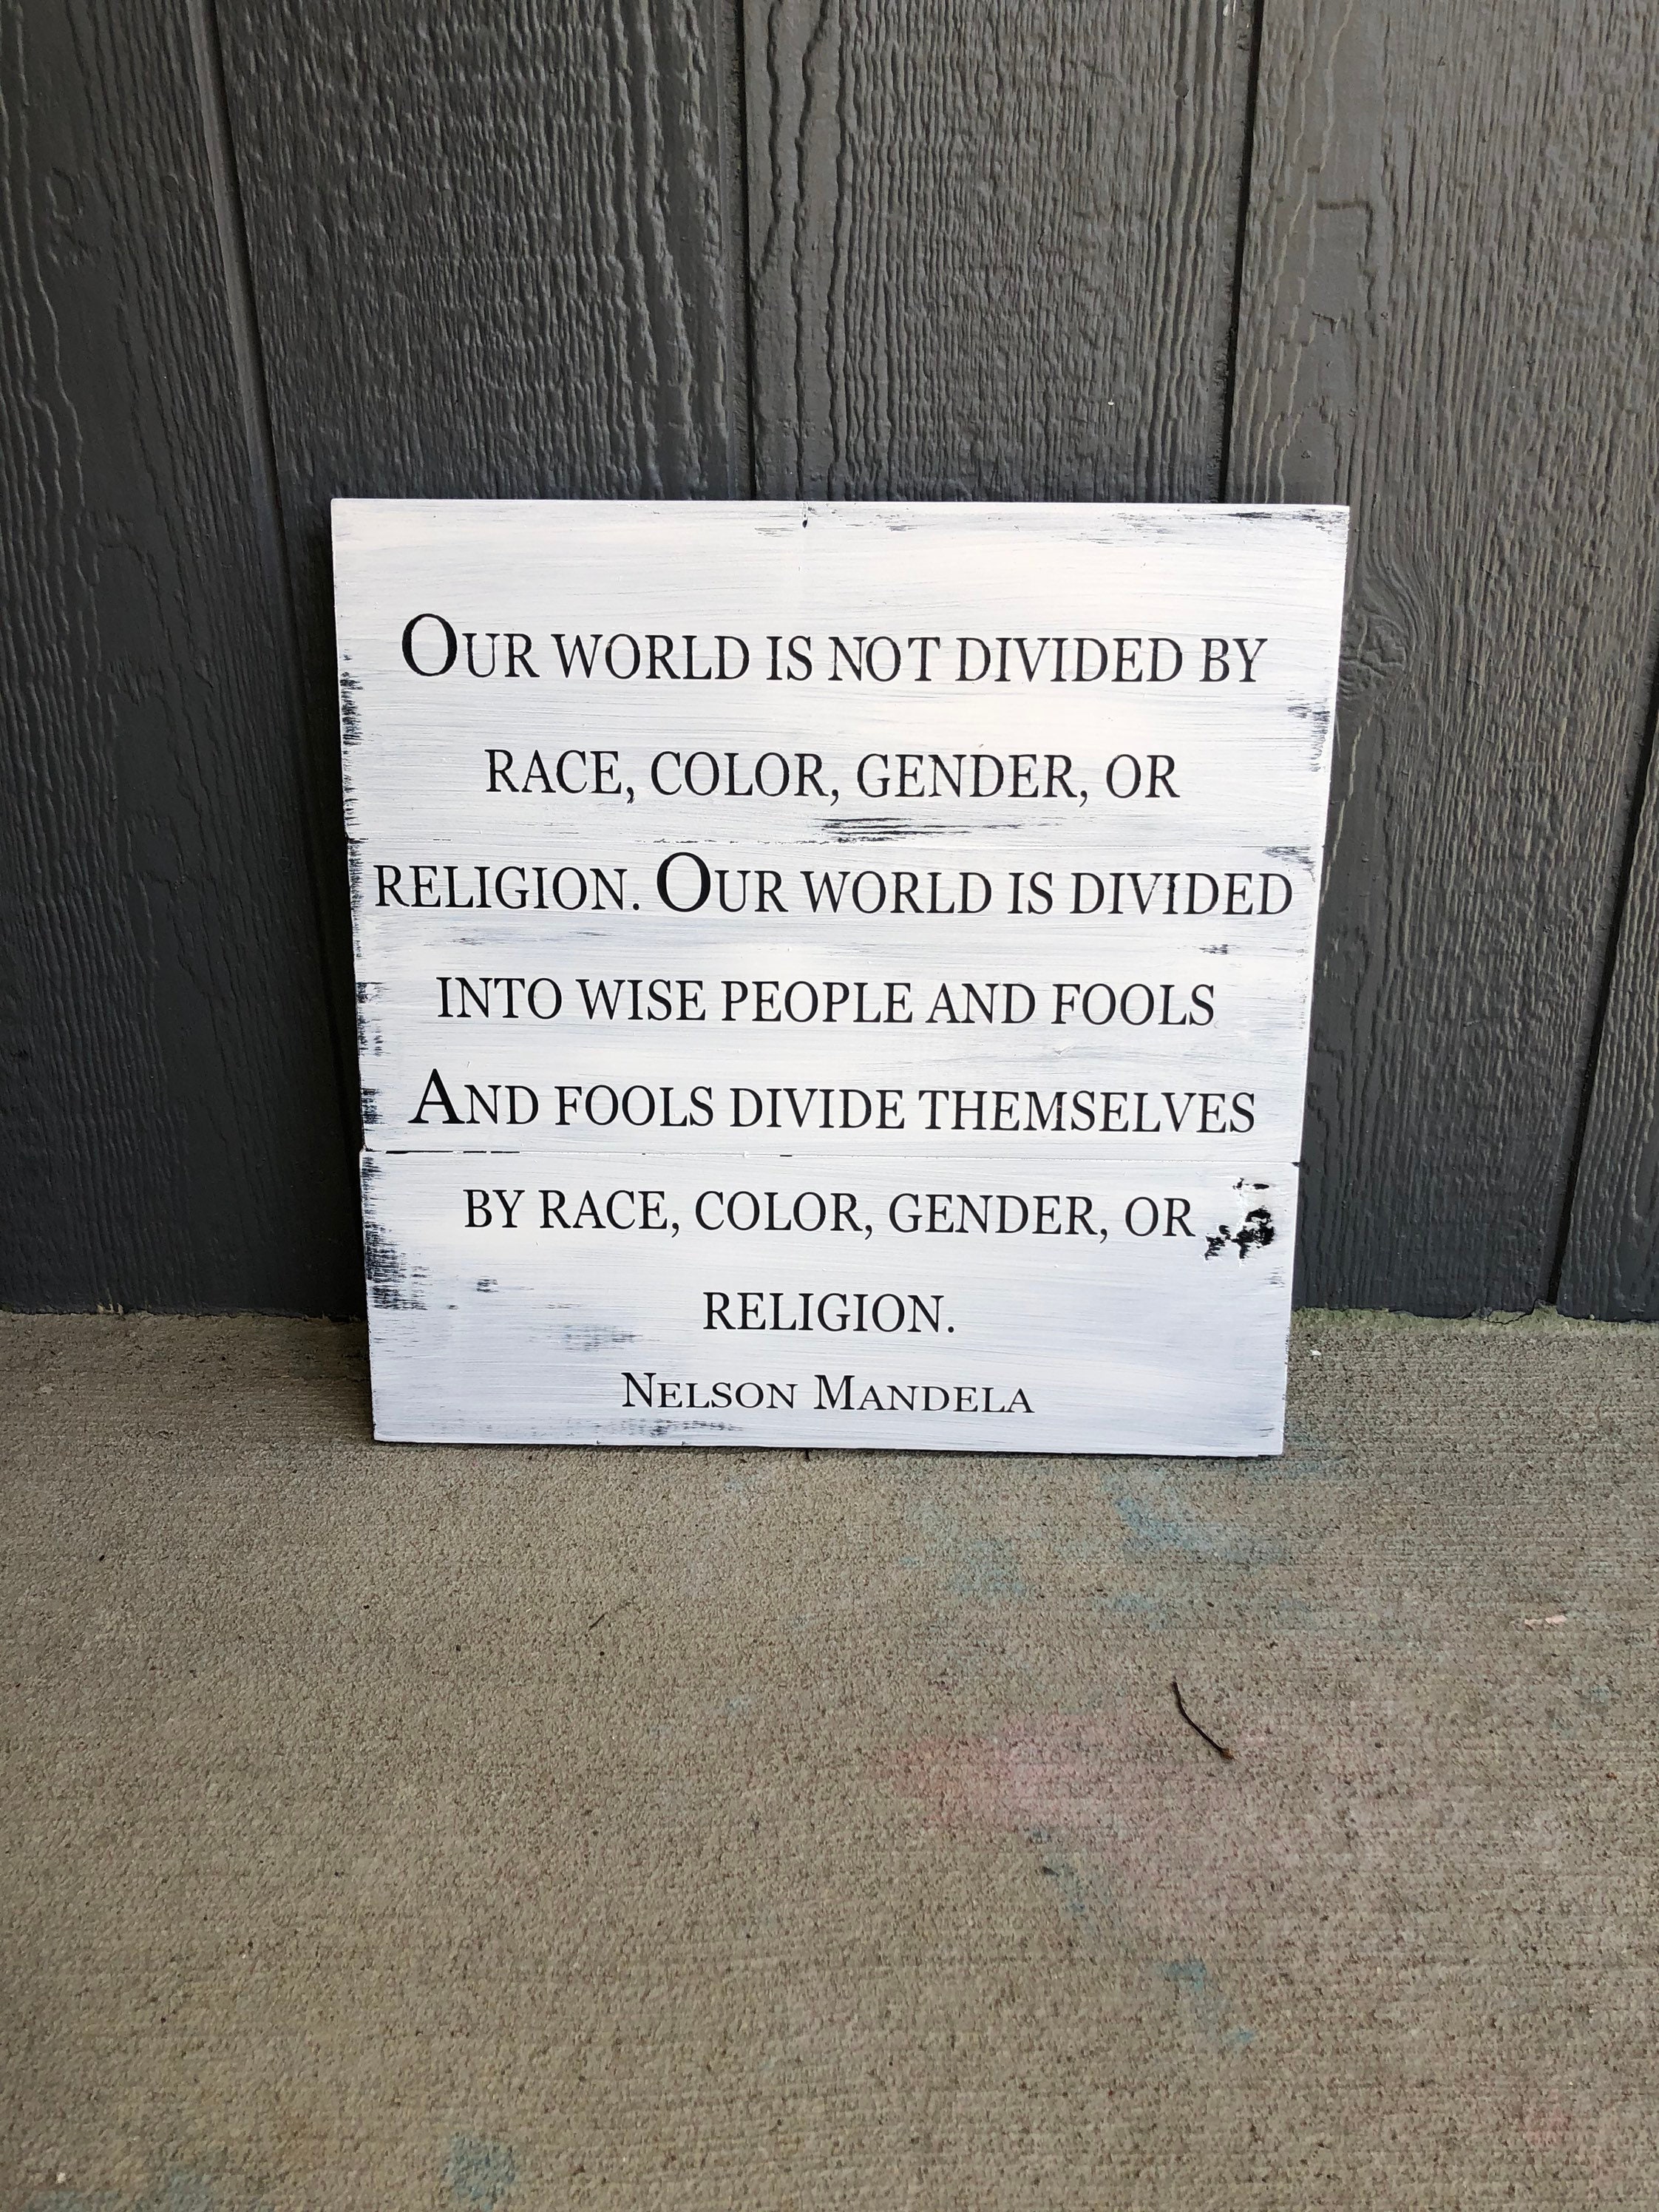 Our world is not divided by
race, color, gender, or
religion. Our world is divided
into wise people and fools
And fools divide themselves
by race, color, gender, or
religion.
Nelson Mandela